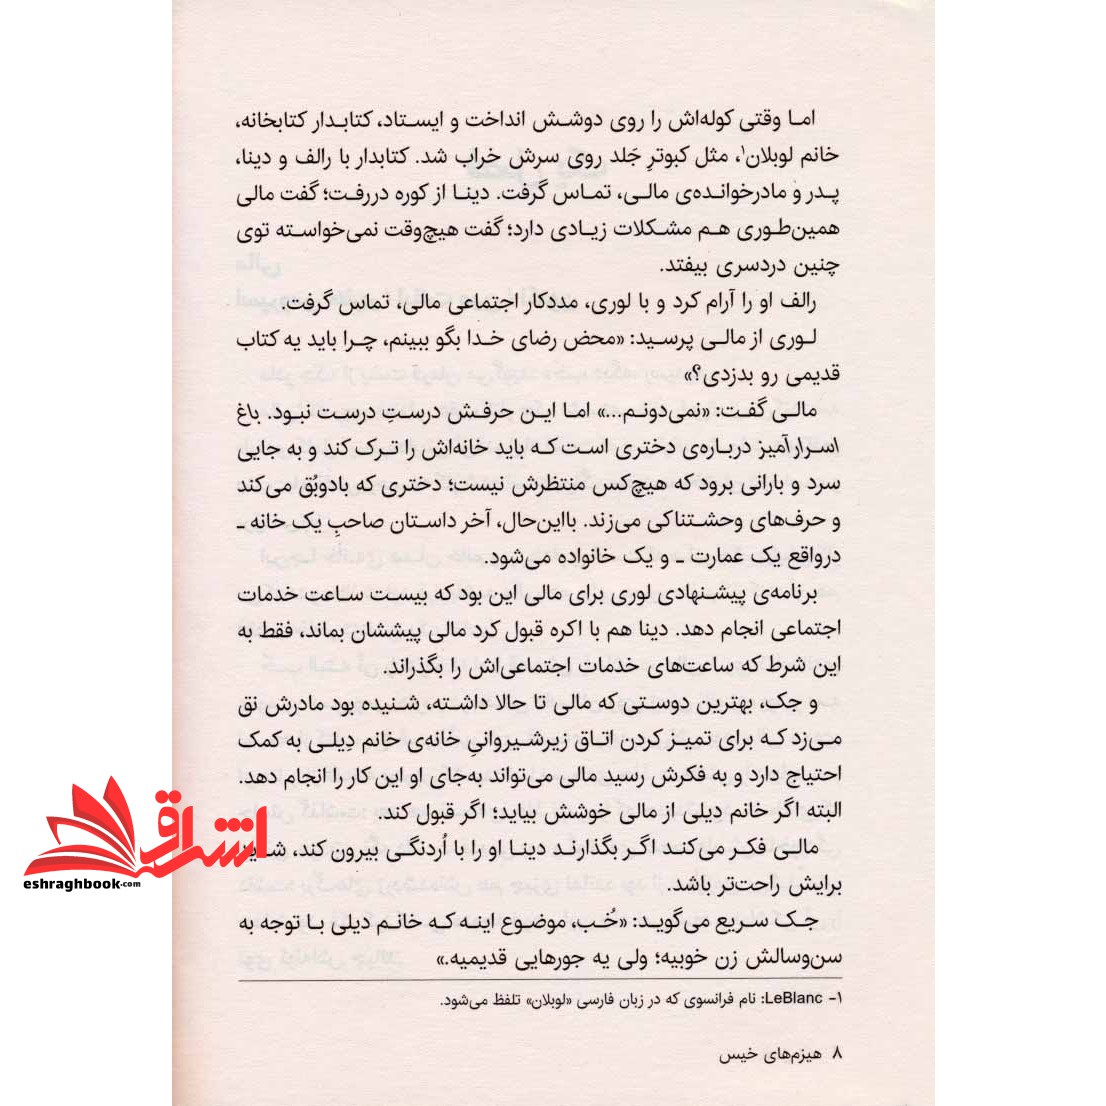 اما وقتی کوله‌اش را روی دوشش انداخت و ایستاد، کتابدار کتابخانه،
خانم لوبلان۱، مثل کبوترِ جَلد روی سرش خراب شد. کتابدار با رالف و دینا،
پدر و مادرخوانده‌ی مالی، تماس گرفت. دینا از کوره دررفت؛ گفت مالی
همین‌طوری هم مشکلات زیادی دارد؛ گفت هیچ‌وقت نمی‌خواسته توی
چنین دردسری بیفتد.
رالف او را آرام کرد و با لوری، مددکار اجتماعی مالی، تماس گرفت.
لوری از مالی پرسید: «محض رضای خدا بگو ببینم، چرا باید یه کتاب
قدیمی رو بدزدی؟»
مالی گفت: «نمی‌دونم...» اما این حرفش درستِ درست نبود. باغ
اسرارآمیز درباره‌ی دختری است که باید خانه‌اش را ترک کند و به جایی
سرد و بارانی برود که هیچ‌کس منتظرش نیست؛ دختری که بادوبُق می‌کند
و حرف‌های وحشتناکی می‌زند. بااین‌حال، آخر داستان صاحبِ یک خانه ـ
درواقع یک عمارت ـ و یک خانواده می‌شود.
برنامه‌ی پیشنهادی لوری برای مالی این بود که بیست ساعت خدمات
اجتماعی انجام دهد. دینا هم با اکره قبول کرد مالی پیششان بماند، فقط به
این شرط که ساعت‌های خدمات اجتماعی‌اش را بگذراند.
و جک، بهترین دوستی که مالی تا حالا داشته، شنیده بود مادرش نق
می‌زد که برای تمیز کردن اتاق زیرشیروانیِ خانه‌ی خانم دِیلی به کمک
احتیاج دارد و به فکرش رسید مالی می‌تواند به‌جای او این کار را انجام دهد.
البته اگر خانم دِیلی از مالی خوشش بیاید؛ اگر قبول کند.
مالی فکر می‌کند اگر بگذارند دینا او را با اُردنگی بیرون کند، شاید
برایش راحت‌تر باشد.
جک سریع می‌گوید: «خُب، موضوع اینه که خانم دیلی با توجه به
سن‌وسالش زن خوبیه؛ ولی یه جورهایی قدیمیه.»
۱- LeBlanc: نام فرانسوی که در زبان فارسی «لوبلان» تلفظ می‌شود.
۸ هیزم‌های خیس
اشراق
eshraghbook.com